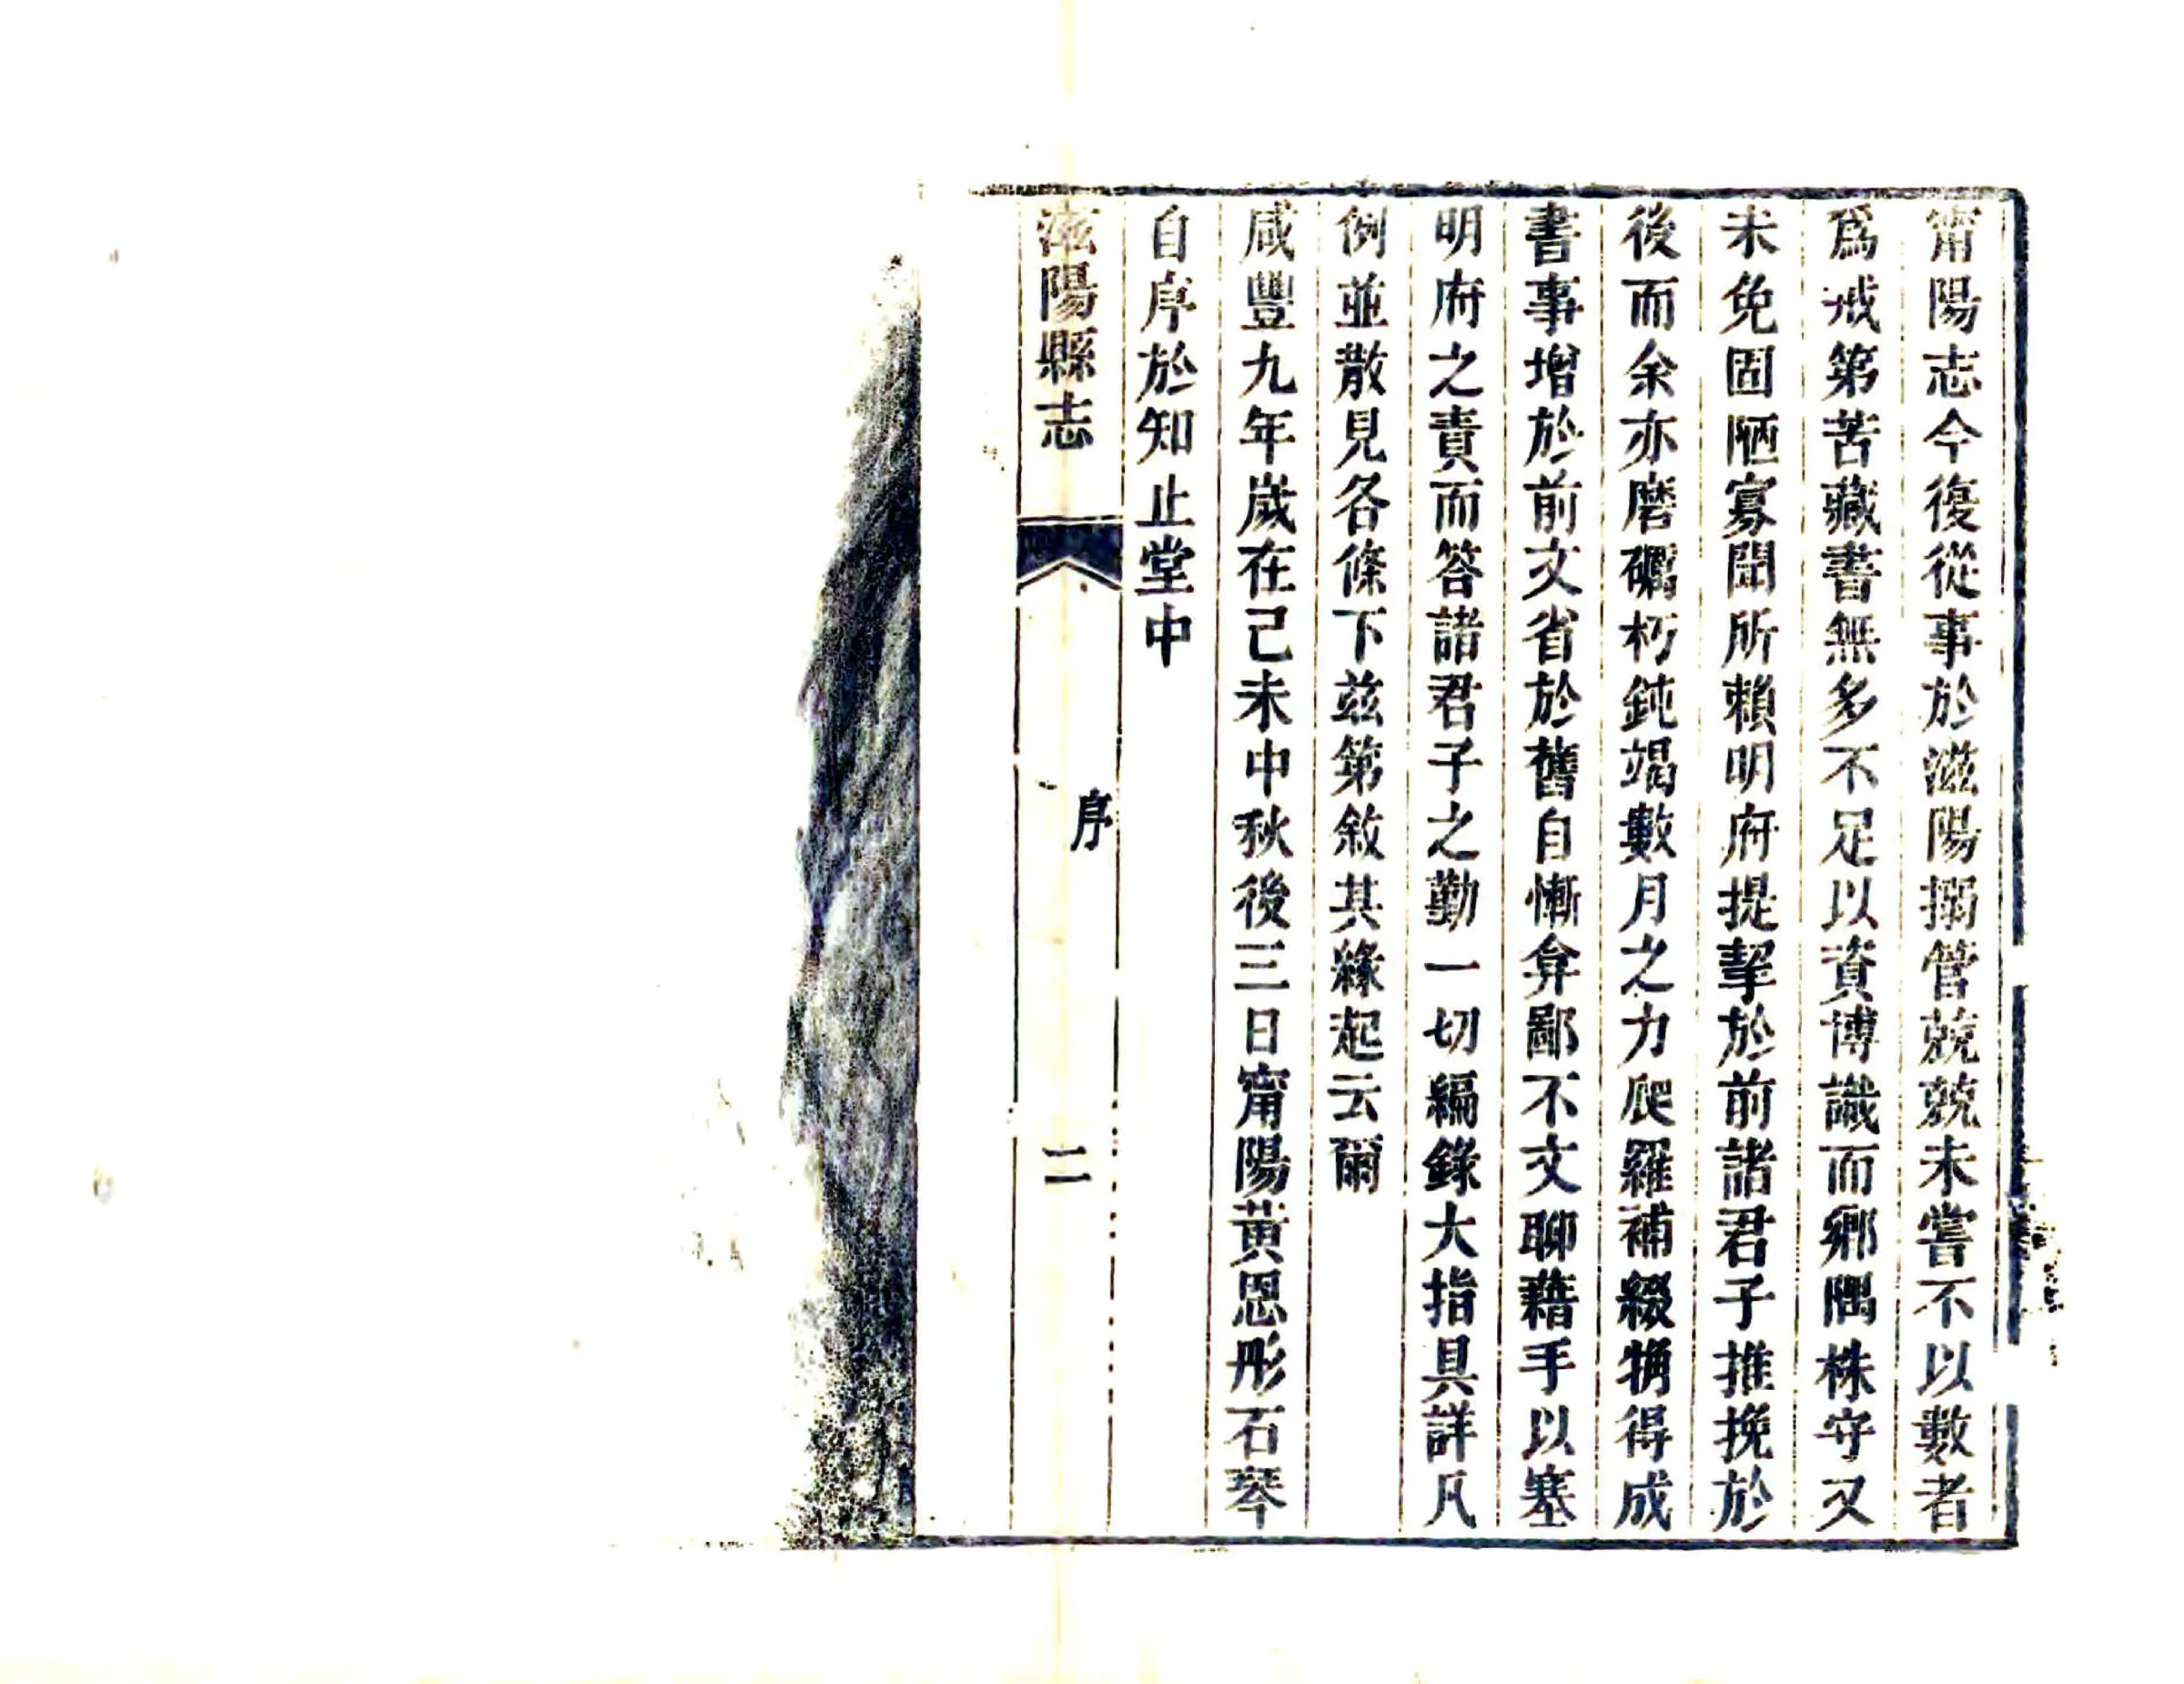 甯陽志今復從事於滋陽搦管兢兢未嘗不以數者
爲戒第苦藏書無多不足以資博識而鄉隅株守又
未免固陋寡聞所賴明府提挈於前諸君子推挽於
後而余亦磨礪朽鈍竭數月之力爬羅補綴觕得成
書事增於前文省於舊自慚弇鄙不文聊藉手以塞
明府之責而答諸君子之勤一切編錄大指具詳凡
例並散見各條下兹第敘其緣起云爾
咸豐九年歲在己未中秋後三日甯陽黃恩彤石琴
自序於知止堂中
滋陽縣志
序
二